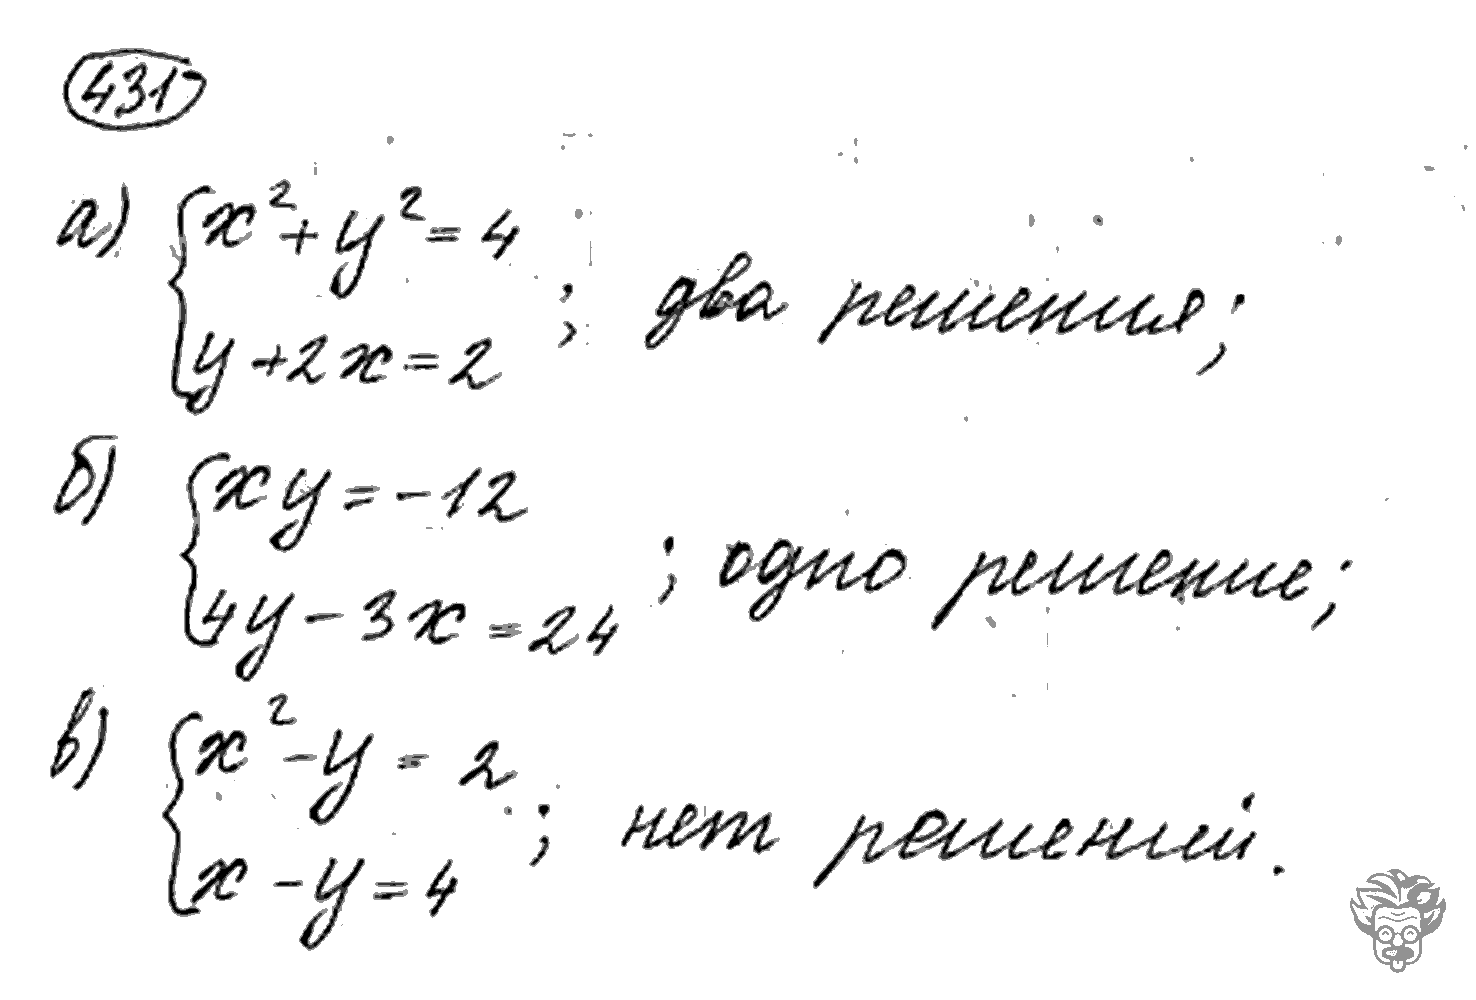 431
а) { x² + y² = 4
y + 2x = 2 ; два решения;
б) { xy = -12
4y - 3x = 24 ; одно решение;
в) { x² - y = 2
x - y = 4 ; нет решений.